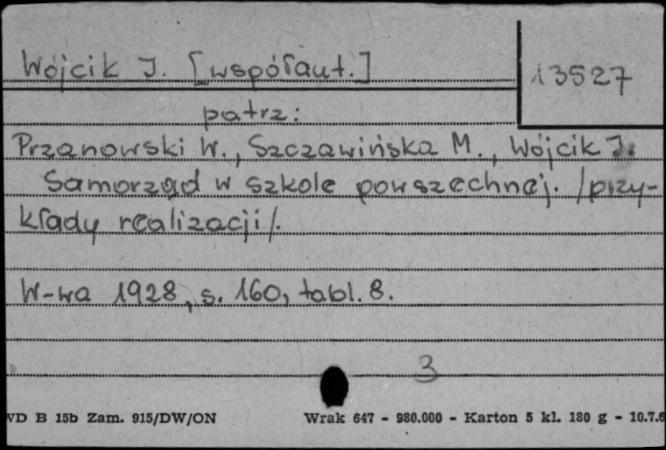 Wójcik J. [współaut.]
13527
patrz:
Przanowski W., Szczawińska M., Wójcik J.
Samorząd w szkole powszechnej. /przy-
kłady realizacji/.
W-wa 1928, s. 160, tabl. 8.
3
VD B 15b Zam. 915/DW/ON Wrak 647 - 980.000 - Karton 5 kl. 180 g - 10.7.6